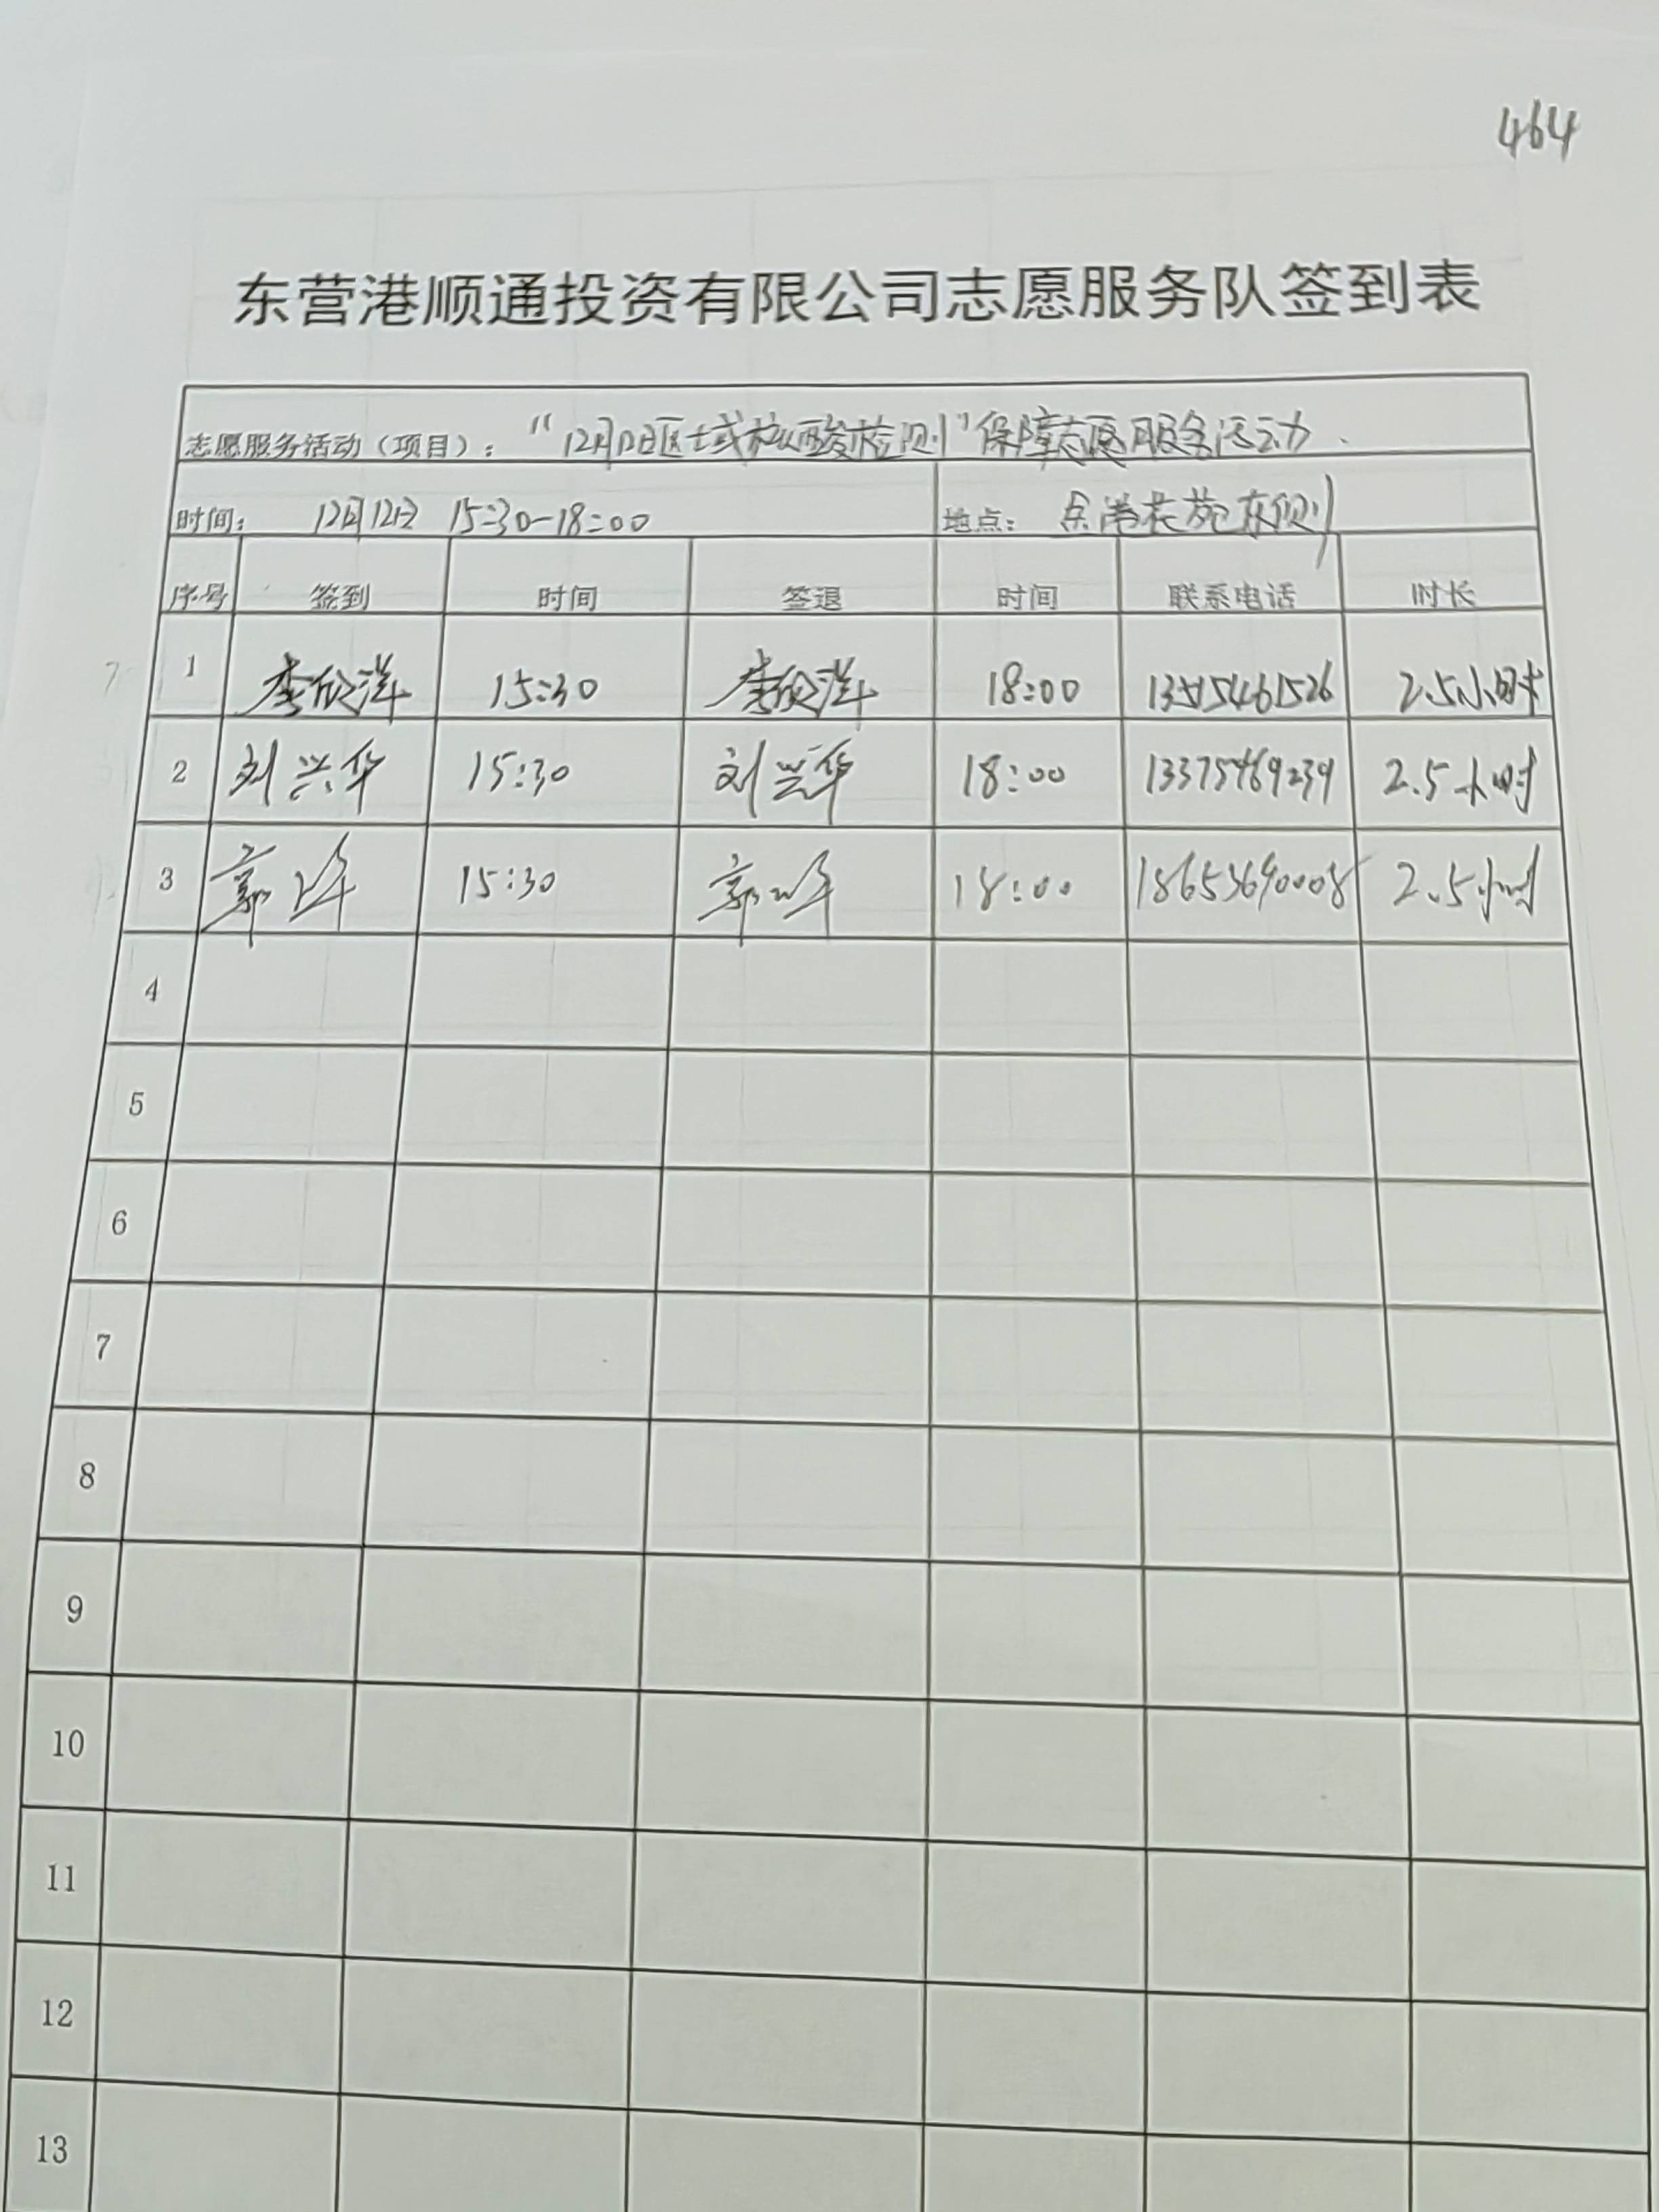 464
东营港顺通投资有限公司志愿服务队签到表
志愿服务活动（项目）： “12月12日区域核酸检测”保障志愿服务活动.
时间： 12月12日 15:30-18:00 地点： 东港花苑东侧
序号 签到 时间 签退 时间 联系电话 时长
1 李欣洋 15:30 李欣洋 18:00 13515461526 2.5小时
2 刘兴华 15:30 刘兴华 18:00 13375469239 2.5小时
3 15:30 18:00 18653690008 2.5小时
4
5
6
7
8
9
10
11
12
13